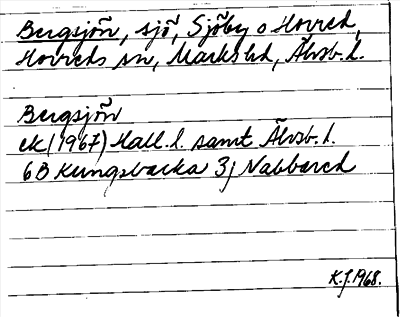 Bergsjön, sjö, Sjöby o Horred,
Horreds sn, Marks hd, Älvsb. l.
Bergsjön
ek (1967) Hall. l. samt Älvsb. l.
6B Kungsbacka 3j Nabbared
K.J. 1968.